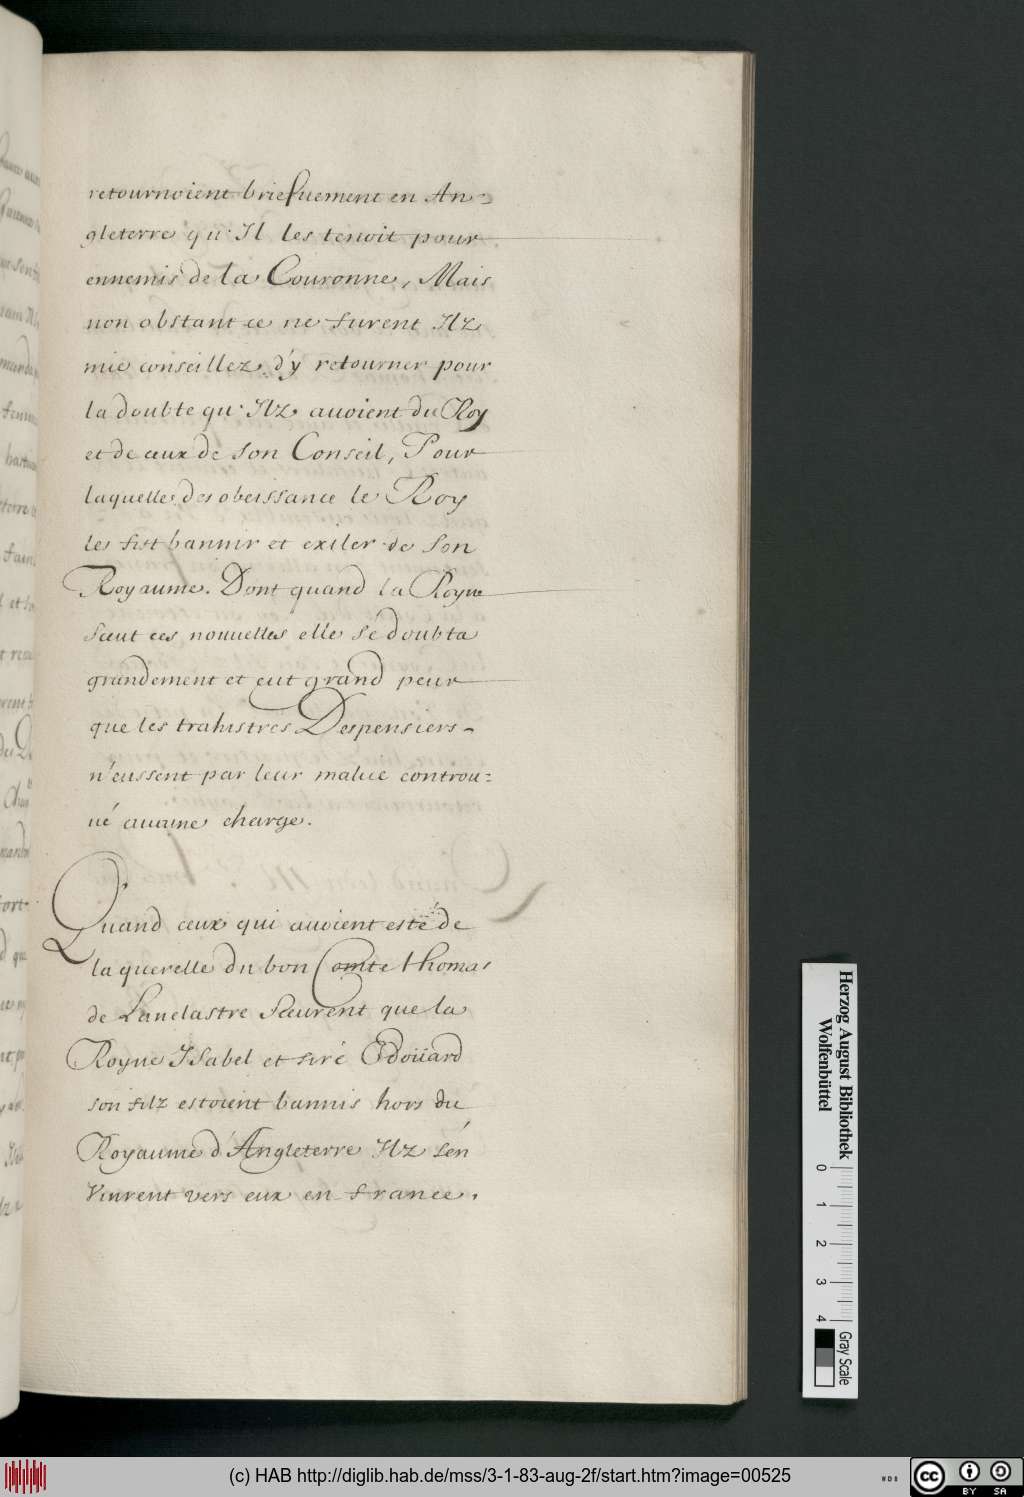 retournoient briefuement en An=
gleterre qu'Il les tenoit pour
ennemis de la Couronne, Mais
non obstant ce ne furent Ilz
mie conseillez d'y retourner pour
la doubte qu'Ilz auoient du Roy
et de ceux de son Conseil, Pour
laquelle desobeissance le Roy
les fist bannir et exiler de son
Royaume. Dont quand la Royne
sceut ces nouuelles elle se doubta
grandement et eut grand peur
que les trahistres Despensiers
n'eussent par leur malice controu=
ué aucune charge.
Quand ceux qui auoient esté de
la querelle du bon Comte thomas
de Lanclastre Sceurent que la
Royne Isabel et sire Edoüard
son filz estoient bannis hors du
Royaume d'Angleterre Ilz s'en
Vinrent vers eux en france,
Herzog August Bibliothek
Wolfenbüttel
0 1 2 3 4
Gray Scale
(c) HAB http://diglib.hab.de/mss/3-1-83-aug-2f/start.htm?image=00525
WDB
cc BY SA